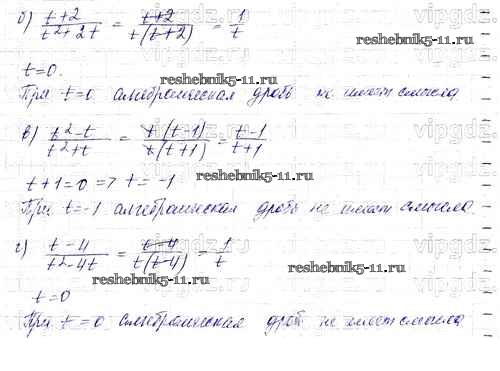 б) (t+2)/(t²+2t) = (t+2)/(t(t+2)) = 1/t
t=0.
reshebnik5-11.ru
При t=0 алгебраическая дробь не имеет смысла
в) (t²-t)/(t²+t) = (t(t-1))/(t(t+1)) = (t-1)/(t+1)
reshebnik5-11.ru
t+1=0 => t=-1
reshebnik5-11.ru
При t=-1 алгебраическая дробь не имеет смысла.
г) (t-4)/(t²-4t) = (t-4)/(t(t-4)) = 1/t
reshebnik5-11.ru
t=0
reshebnik5-11.ru
При t=0 алгебраическая дробь не имеет смысла
vipgdz.
vipgdz.
vipgdz.
vipgdz.